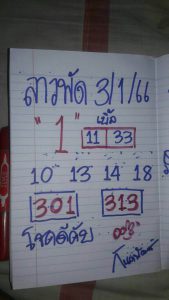 ลาวพัด 3/1/66
เบิ้ล
"1" 11 33
10 13 14 18
301 313
โชคดีคับ